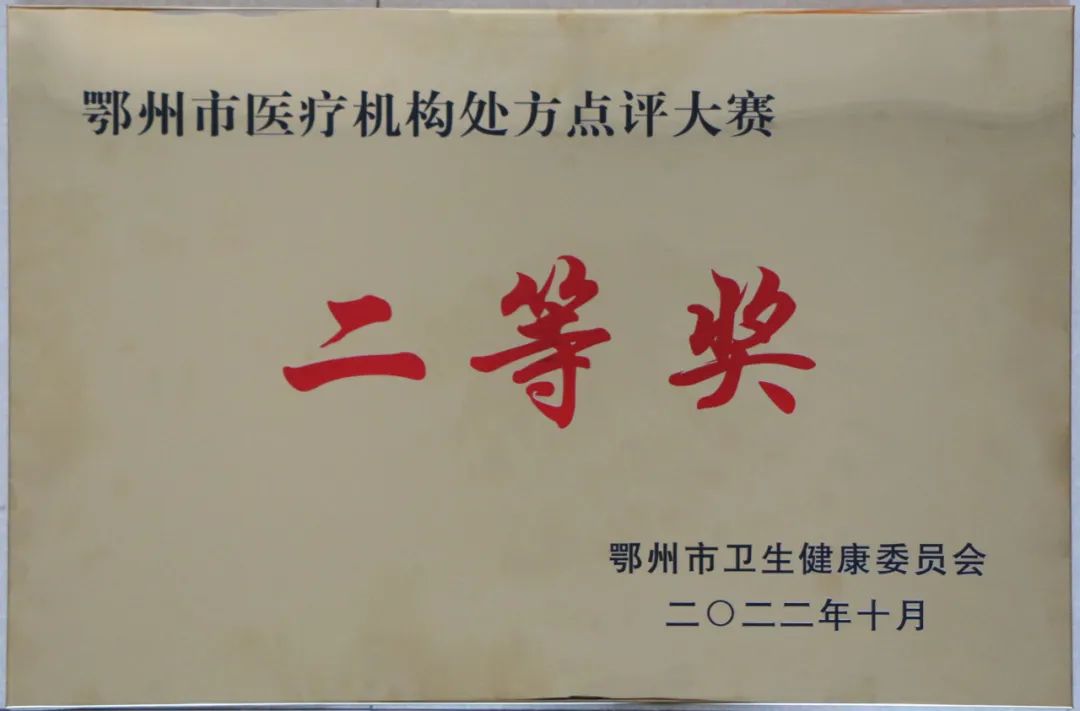 鄂州市医疗机构处方点评大赛
二等奖
鄂州市卫生健康委员会
二〇二二年十月